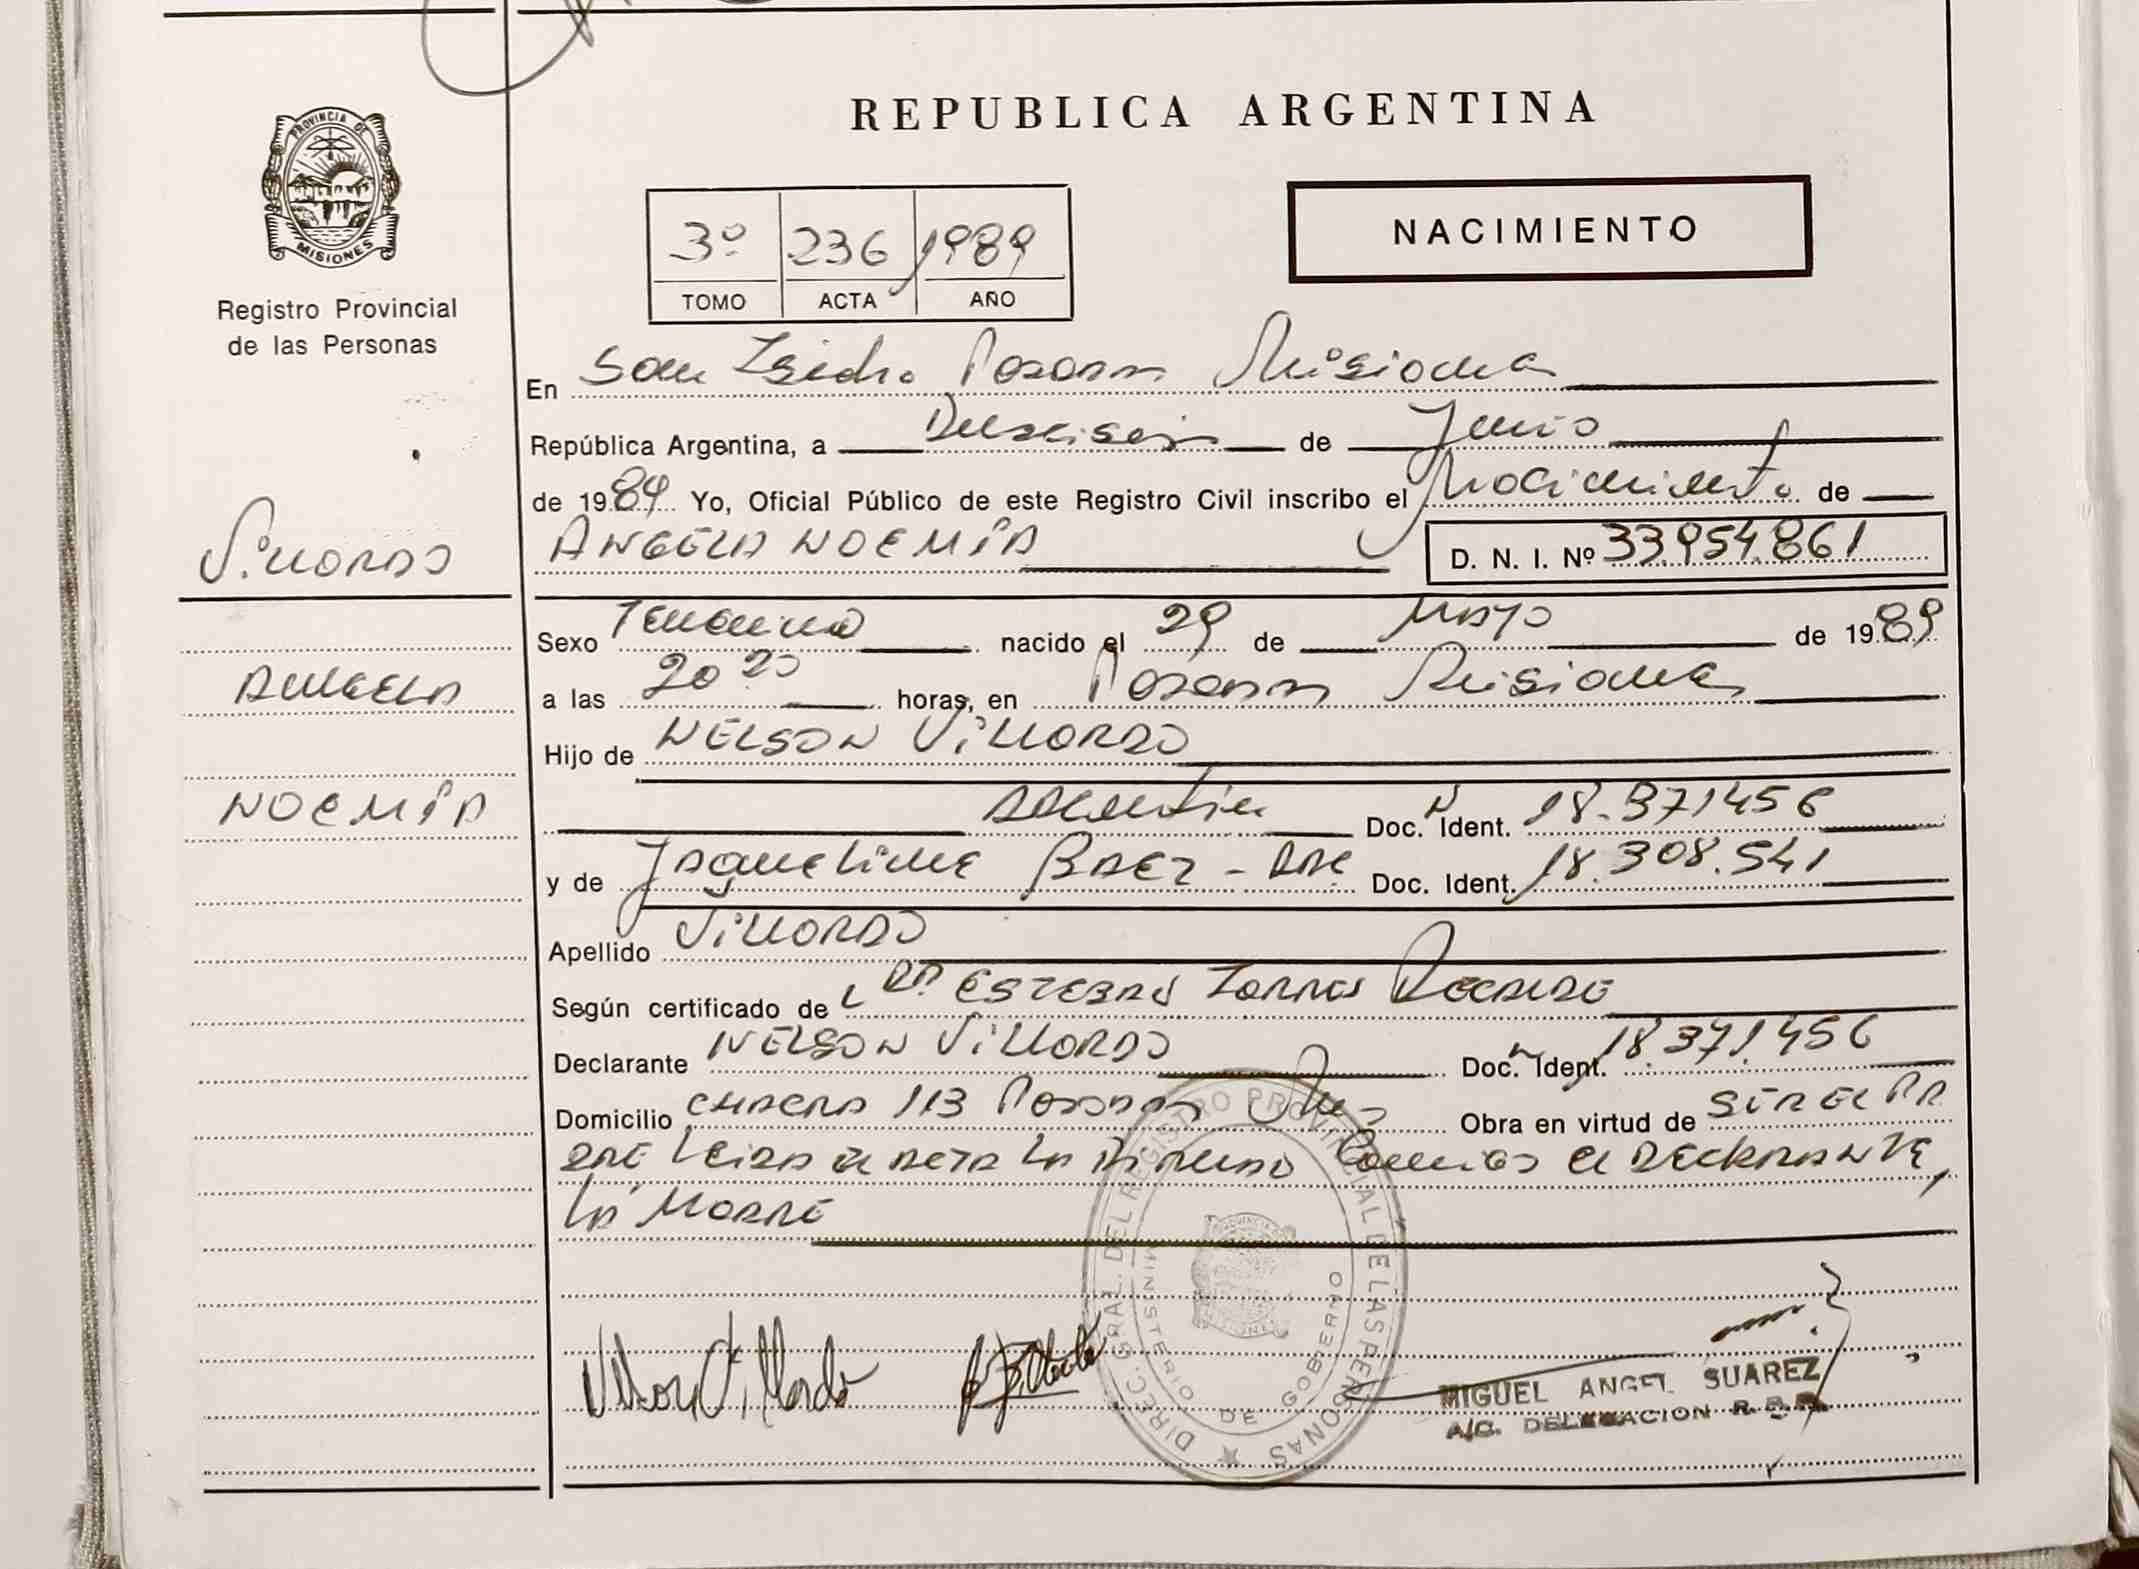 REPUBLICA ARGENTINA
PROVINCIA DE
MISIONES
Registro Provincial
de las Personas
3º 236 1989
TOMO ACTA AÑO
NACIMIENTO
En San Isidro Posadas Misiones
República Argentina, a Dieciseis de Junio
de 1989 Yo, Oficial Público de este Registro Civil inscribo el Nacimiento de
Villordo
ANGELA NOEMIA
D. N. I. Nº 33.954.861
Sexo Femenino nacido el 29 de MAYO de 1989
ANGELA
a las 20 horas, en Posadas Misiones
Hijo de NELSON VILLORDO
NOEMIA
Argentino Doc. N Ident. 18.371456
y de Jaqueline BAEZ - ARG Doc. Ident. 18.308.541
Apellido VILLORDO
Según certificado de DR ESTEBAN TORRES
Declarante NELSON VILLORDO Doc. N Ident. 18.371.456
Domicilio CHACRA 113 Posadas Mnes Obra en virtud de SER EL PA
DRE Leida el ACTA LA Conmigo el DECLARANTE,
LA MADRE
DIREC. GRAL. DEL REGISTRO PROVINCIAL DE LAS PERSONAS
MINISTERIO DE GOBIERNO
Nelson Villordo
MIGUEL ANGEL SUAREZ
A/C. DELEGACION